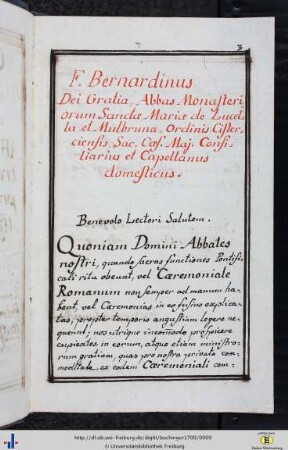 3
F. Bernardinus
Dei Gratia, Abbas Monasteri
orum Sanctæ Mariæ de Lucel
la et Mulbruna, Ordinis Cister-
ciensis, Sac. Cæs. Maj. Consi-
liarius et Capellanus
domesticus.
Benevolo Lectori Salutem.
Quoniam Domini Abbates
nostri, quando sacras functiones Pontifi-
cali ritu obeunt, vel Cæremoniale
Romanum non semper ad manum ha-
bent, vel Cæremonias in eo fusius explica-
tas, propter temporis angustiam legere ne-
queunt; nos utrique incommodo prospicere
cupientes in eorum, atque etiam ministro-
rum gratiam, quas pro nostra privata com-
moditate, ex eodem Cæremoniali com-
http://dl.ub.uni-freiburg.de/diglit/buchinger1700/0009
© Universitätsbibliothek Freiburg